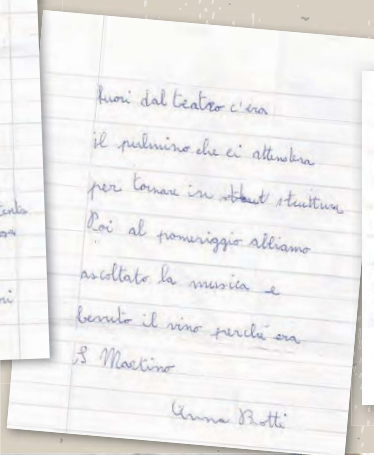 fuori dal teatro c'era
il pulmino che ci attendeva
per tornare in struttura
Poi al pomeriggio abbiamo
ascoltato la musica e
bevuto il vino perché era
S Martino
Anna Botti